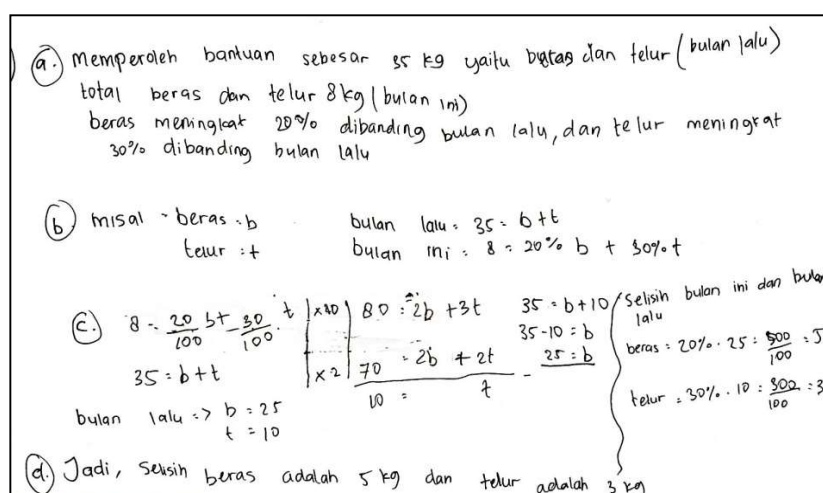 a. Memperoleh bantuan sebesar 35 kg yaitu beras dan telur (bulan lalu)
total beras dan telur 8 kg (bulan ini)
beras meningkat 20% dibanding bulan lalu, dan telur meningkat
30% dibanding bulan lalu
b. misal - beras : b bulan lalu : 35 = b+t
telur : t bulan ini : 8 = 20% b + 30% t
c. 8 = 20/100 b + 30/100 . t | x10 | 80 = 2b + 3t
35 = b+t | x2 | 70 = 2b + 2t -
10 = t
bulan lalu => b = 25
t = 10
35 = b+10
35-10 = b
25 = b
Selisih bulan ini dan bulan
lalu
beras = 20% . 25 = 500/100 = 5
telur = 30% . 10 = 300/100 = 3
d. Jadi, selisih beras adalah 5 kg dan telur adalah 3 kg